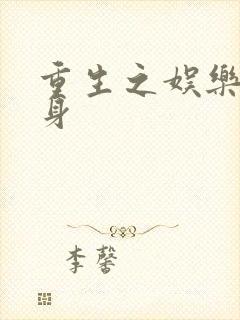 重生之娱樂
身
李馨